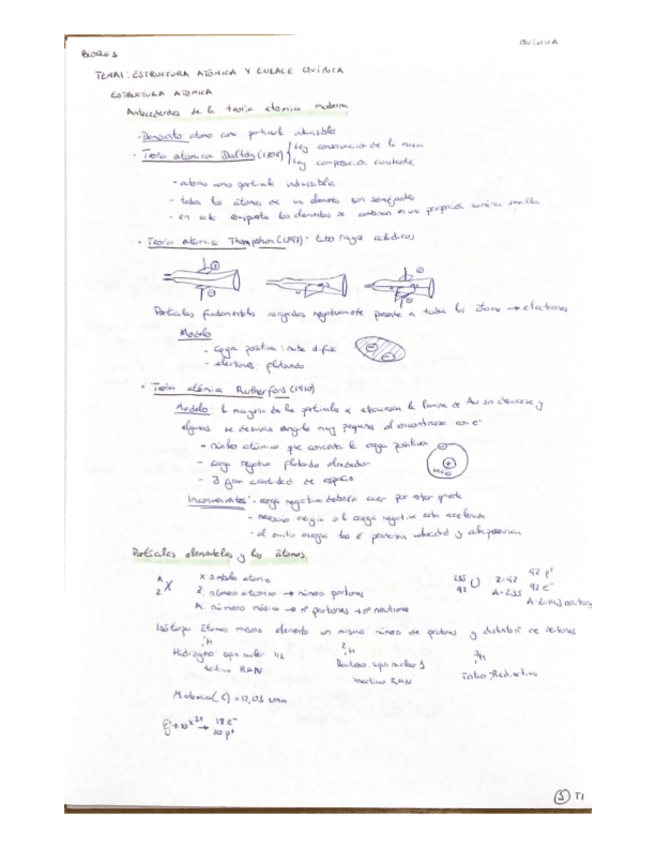 QUÍMICA
BLOQUE 1
TEMA 1: ESTRUCTURA ATÓMICA Y ENLACE QUÍMICA
ESTRUCTURA ATOMICA
Antecedentes de la teoría atómica moderna
- Demócrito átomo como partícula indivisible
· Teoría atómica Dalton (1808) { ley conservación de la masa
ley composición constante
- átomo como partícula indivisible
- todos los átomos de un elemento son semejantes
- en cada compuesto los elementos se combinan en una proporción numérica sencilla
· Teoría atómica Thompshon (1897) - tubo rayos catódicos
Partículas fundamentales cargadas negativamente presente a todos los átomos → electrones
Modelo
- Carga positiva: nube difusa
- electrones: flotando
· Teoría atómica Rutherford (1910)
Modelo: la mayoría de las partículas α atraviesan la lámina de Au sin desviarse y
algunas se desvían ángulo muy pequeños al encontrarse con e⁻
- núcleo atómico que concentra la carga positiva
- carga negativa flotando alrededor
- gran cantidad de espacio
Inconvenientes - carga negativa debería caer por estar quieta
- necesario energía si la carga negativa esta acelerada
- al emitir energía los e⁻ perderían velocidad y
Partículas elementales y los átomos
A Z X
X símbolo atómico
Z: número atómico → número protones
A: número másico → nº protones + nº neutrones
235 92 U
Z=92
A=235
92 p⁺
92 e⁻
A-Z=143 neutrones
Isótopo átomos mismo elemento con mismo número de protones y distinto nº de neutrones
Hidrógeno: spin nuclear 1/2
activo RMN
Deuterio: spin nuclear 1
inactivo RMN
tritio: Radiactivo
18 e⁻
20 p⁺
1 T1